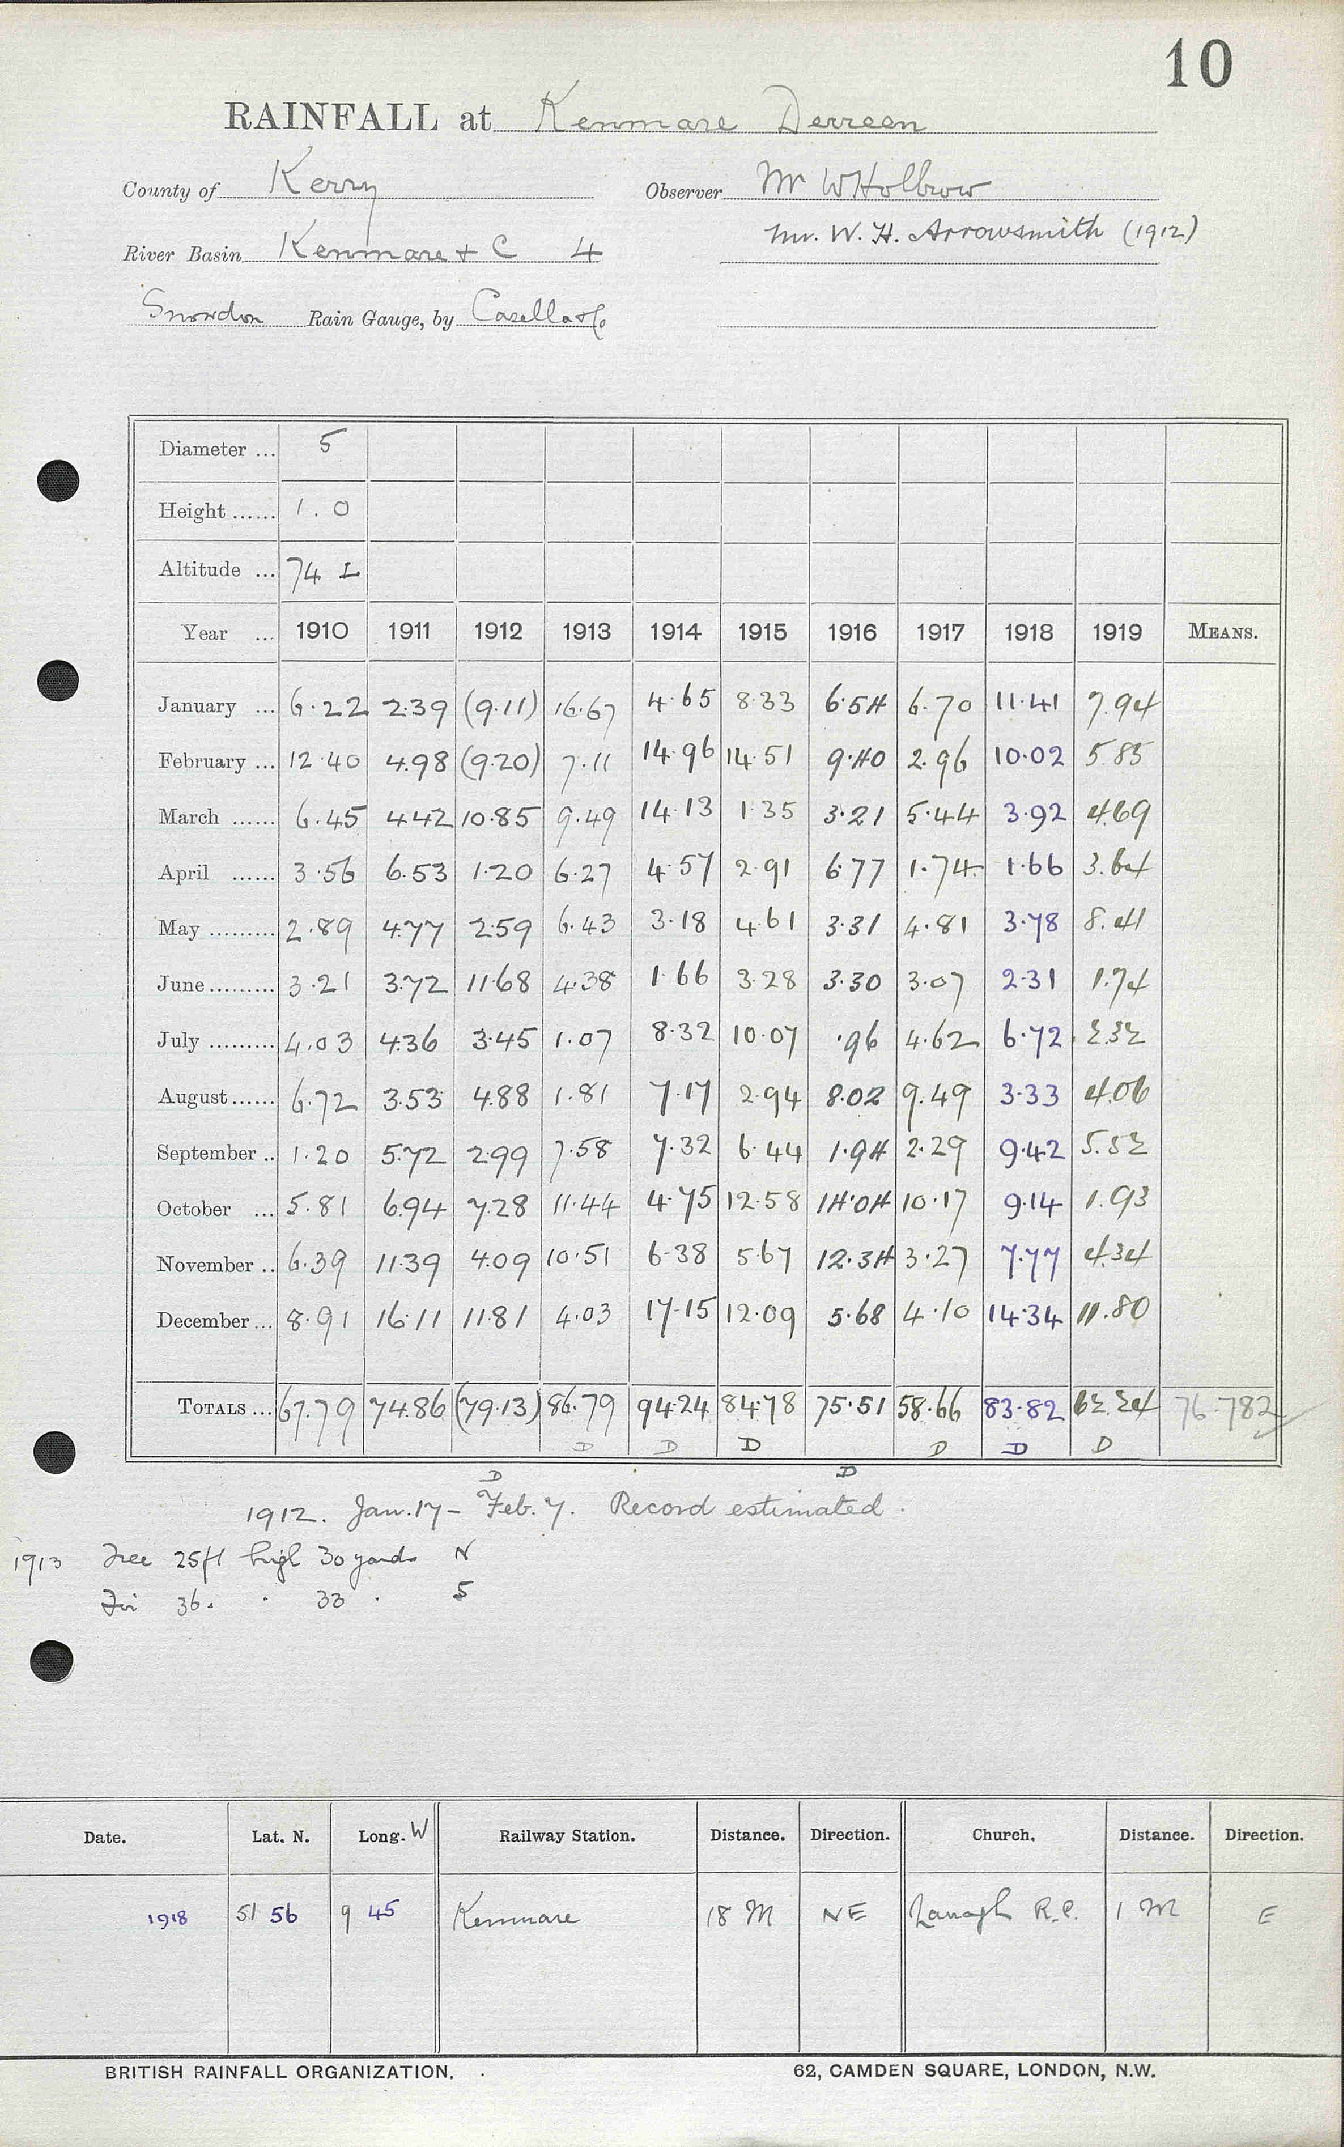 10
RAINFALL at Kenmare Derreen
County of Kerry Observer Mr W Holbrow
Mr. W. H. Arrowsmith (1912)
River Basin Kenmare + C 4
Snowdon Rain Gauge, by Casella & Co
Diameter ... 5
Height ...... 1.0
Altitude ... 74 L
Year ... 1910 1911 1912 1913 1914 1915 1916 1917 1918 1919 MEANS.
January ... 6.22 2.39 (9.11) 16.67 4.65 8.33 6.54 6.70 11.41 7.94
February ... 12.40 4.98 (9.20) 7.11 14.96 14.51 9.40 2.96 10.02 5.85
March ...... 6.45 4.42 10.85 9.49 14.13 1.35 3.21 5.44 3.92 4.69
April ...... 3.56 6.53 1.20 6.27 4.57 2.91 6.77 1.74 1.66 3.64
May ......... 2.89 4.77 2.59 6.43 3.18 4.61 3.31 4.81 3.78 8.41
June ......... 3.21 3.72 11.68 4.38 1.66 3.28 3.30 3.07 2.31 1.74
July ......... 4.03 4.36 3.45 1.07 8.32 10.07 .96 4.62 6.72 2.32
August ...... 6.72 3.53 4.88 1.81 7.17 2.94 8.02 9.49 3.33 4.06
September .. 1.20 5.72 2.99 7.58 7.32 6.44 1.94 2.29 9.42 5.52
October ... 5.81 6.94 7.28 11.44 4.75 12.58 14.04 10.17 9.14 1.93
November .. 6.39 11.39 4.09 10.51 6.38 5.67 12.34 3.27 7.77 4.34
December ... 8.91 16.11 11.81 4.03 17.15 12.09 5.68 4.10 14.34 11.80
TOTALS ... 67.79 74.86 (79.13) 86.79 94.24 84.78 75.51 58.66 83.82 62.24 76.782
D D D D D D
D D
1912. Jan. 17 – Feb. 7. Record estimated.
1913 Tree 25ft high 30 yards N
36. " 33 " S
Date. Lat. N. Long. W Railway Station. Distance. Direction. Church. Distance. Direction.
1918 51 56 9 45 Kenmare 18 M NE Lauragh R.C. 1 M E
BRITISH RAINFALL ORGANIZATION. 62, CAMDEN SQUARE, LONDON, N.W.